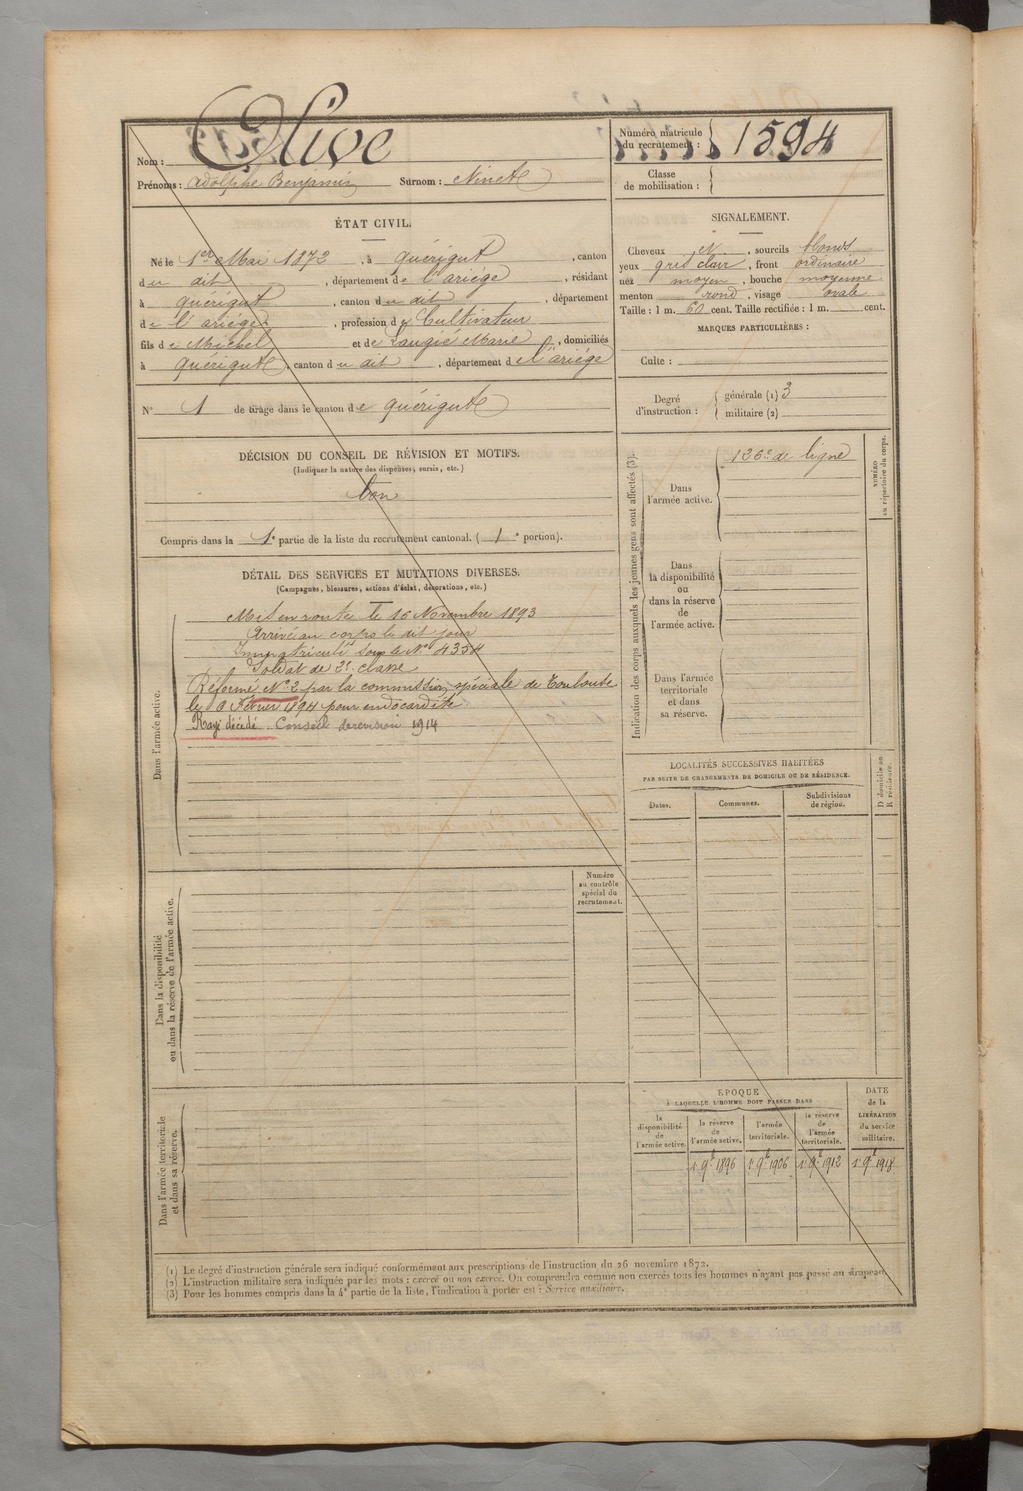 Nom : Olive
Prénoms : Adolphe Benjamin Surnom : Ninet
Numéro matricule du recrutement : 1594
Classe de mobilisation :
ÉTAT CIVIL.
Né le 1er Mai 1872, à Quérigut, canton
du dit, département de l'ariège, résidant
à Quérigut, canton du dit, département
de l'ariège, profession de Cultivateur
fils de Michel et de Laugié Marie, domiciliés
à Quérigut, canton du dit, département de l'ariège
N° 1 de tirage dans le canton de Quérigut
SIGNALEMENT.
Cheveux et, sourcils blonds
yeux gris clair, front ordinaire
nez moyen, bouche moyenne
menton rond, visage ovale
Taille : 1 m. 60 cent. Taille rectifiée : 1 m. cent.
MARQUES PARTICULIÈRES :
Culte :
Degré d'instruction : générale (1) 3
militaire (2)
DÉCISION DU CONSEIL DE RÉVISION ET MOTIFS.
(Indiquer la nature des dispenses, sursis, etc.)
bon
Compris dans la 1e partie de la liste du recrutement cantonal. (1e portion).
DÉTAIL DES SERVICES ET MUTATIONS DIVERSES.
(Campagnes, blessures, actions d'éclat, décorations, etc.)
Dans l'armée active.
Mis en route le 16 Novembre 1893
Arrivé au corps le dit jour
Immatriculé sous le N° 4354
Soldat de 2e classe
Réformé N° 2 par la commission spéciale de Toulouse
le 9 Février 1894 pour endocardite
Rayé décédé. Conseil de révision 1914
Dans la disponibilité
ou dans la réserve de l'armée active.
Numéro
au contrôle
spécial du
recrutement.
Dans l'armée territoriale
et dans sa réserve.
Indication des corps auxquels les jeunes gens sont affectés (3).
Dans
l'armée active.
126e de ligne
NUMÉRO
au répertoire du corps.
Dans
la disponibilité
ou
dans la réserve
de
l'armée active.
Dans l'armée
territoriale
et dans
sa réserve.
LOCALITÉS SUCCESSIVES HABITÉES
PAR SUITE DE CHANGEMENTS DE DOMICILE OU DE RÉSIDENCE.
Dates.
Communes.
Subdivisions
de région.
D domicile ou
R résidence.
ÉPOQUE
À LAQUELLE L'HOMME DOIT PASSER DANS
la
disponibilité
de
l'armée active.
la réserve
de
l'armée active.
l'armée
territoriale.
la réserve
de
l'armée
territoriale.
DATE
de la
LIBÉRATION
du service
militaire.
1e 9bre 1896 1e 9bre 1906 1e 9bre 1912 1e 9bre 1918
(1) Le degré d'instruction générale sera indiqué conformément aux prescriptions de l'instruction du 26 novembre 1872.
(2) L'instruction militaire sera indiquée par les mots : exercé ou non exercé. On comprendra comme non exercés tous les hommes n'ayant pas passé au drapeau.
(3) Pour les hommes compris dans la 4e partie de la liste, l'indication à porter est : Service auxiliaire.